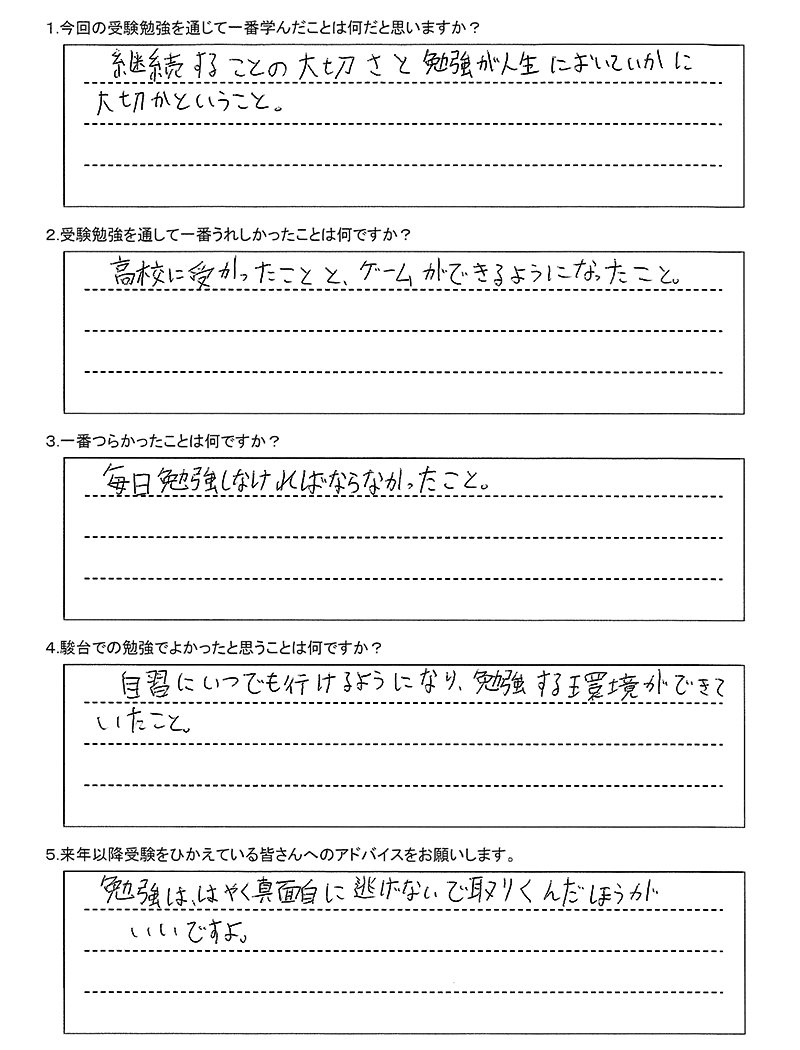 1.今回の受験勉強を通じて一番学んだことは何だと思いますか？
継続することの大切さと勉強が人生においていかに
大切かということ。
2.受験勉強を通して一番うれしかったことは何ですか？
高校に受かったことと、ゲームができるようになったこと。
3.一番つらかったことは何ですか？
毎日勉強しなければならなかったこと。
4.駿台での勉強でよかったと思うことは何ですか？
自習にいつでも行けるようになり、勉強する環境ができて
いたこと。
5.来年以降受験をひかえている皆さんへのアドバイスをお願いします。
勉強は、はやく真面目に逃げないで取りくんだほうが
いいですよ。